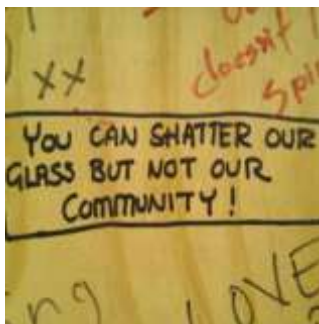 xx
doesn't
YOU CAN SHATTER OUR
GLASS BUT NOT OUR
COMMUNITY!
LOVE